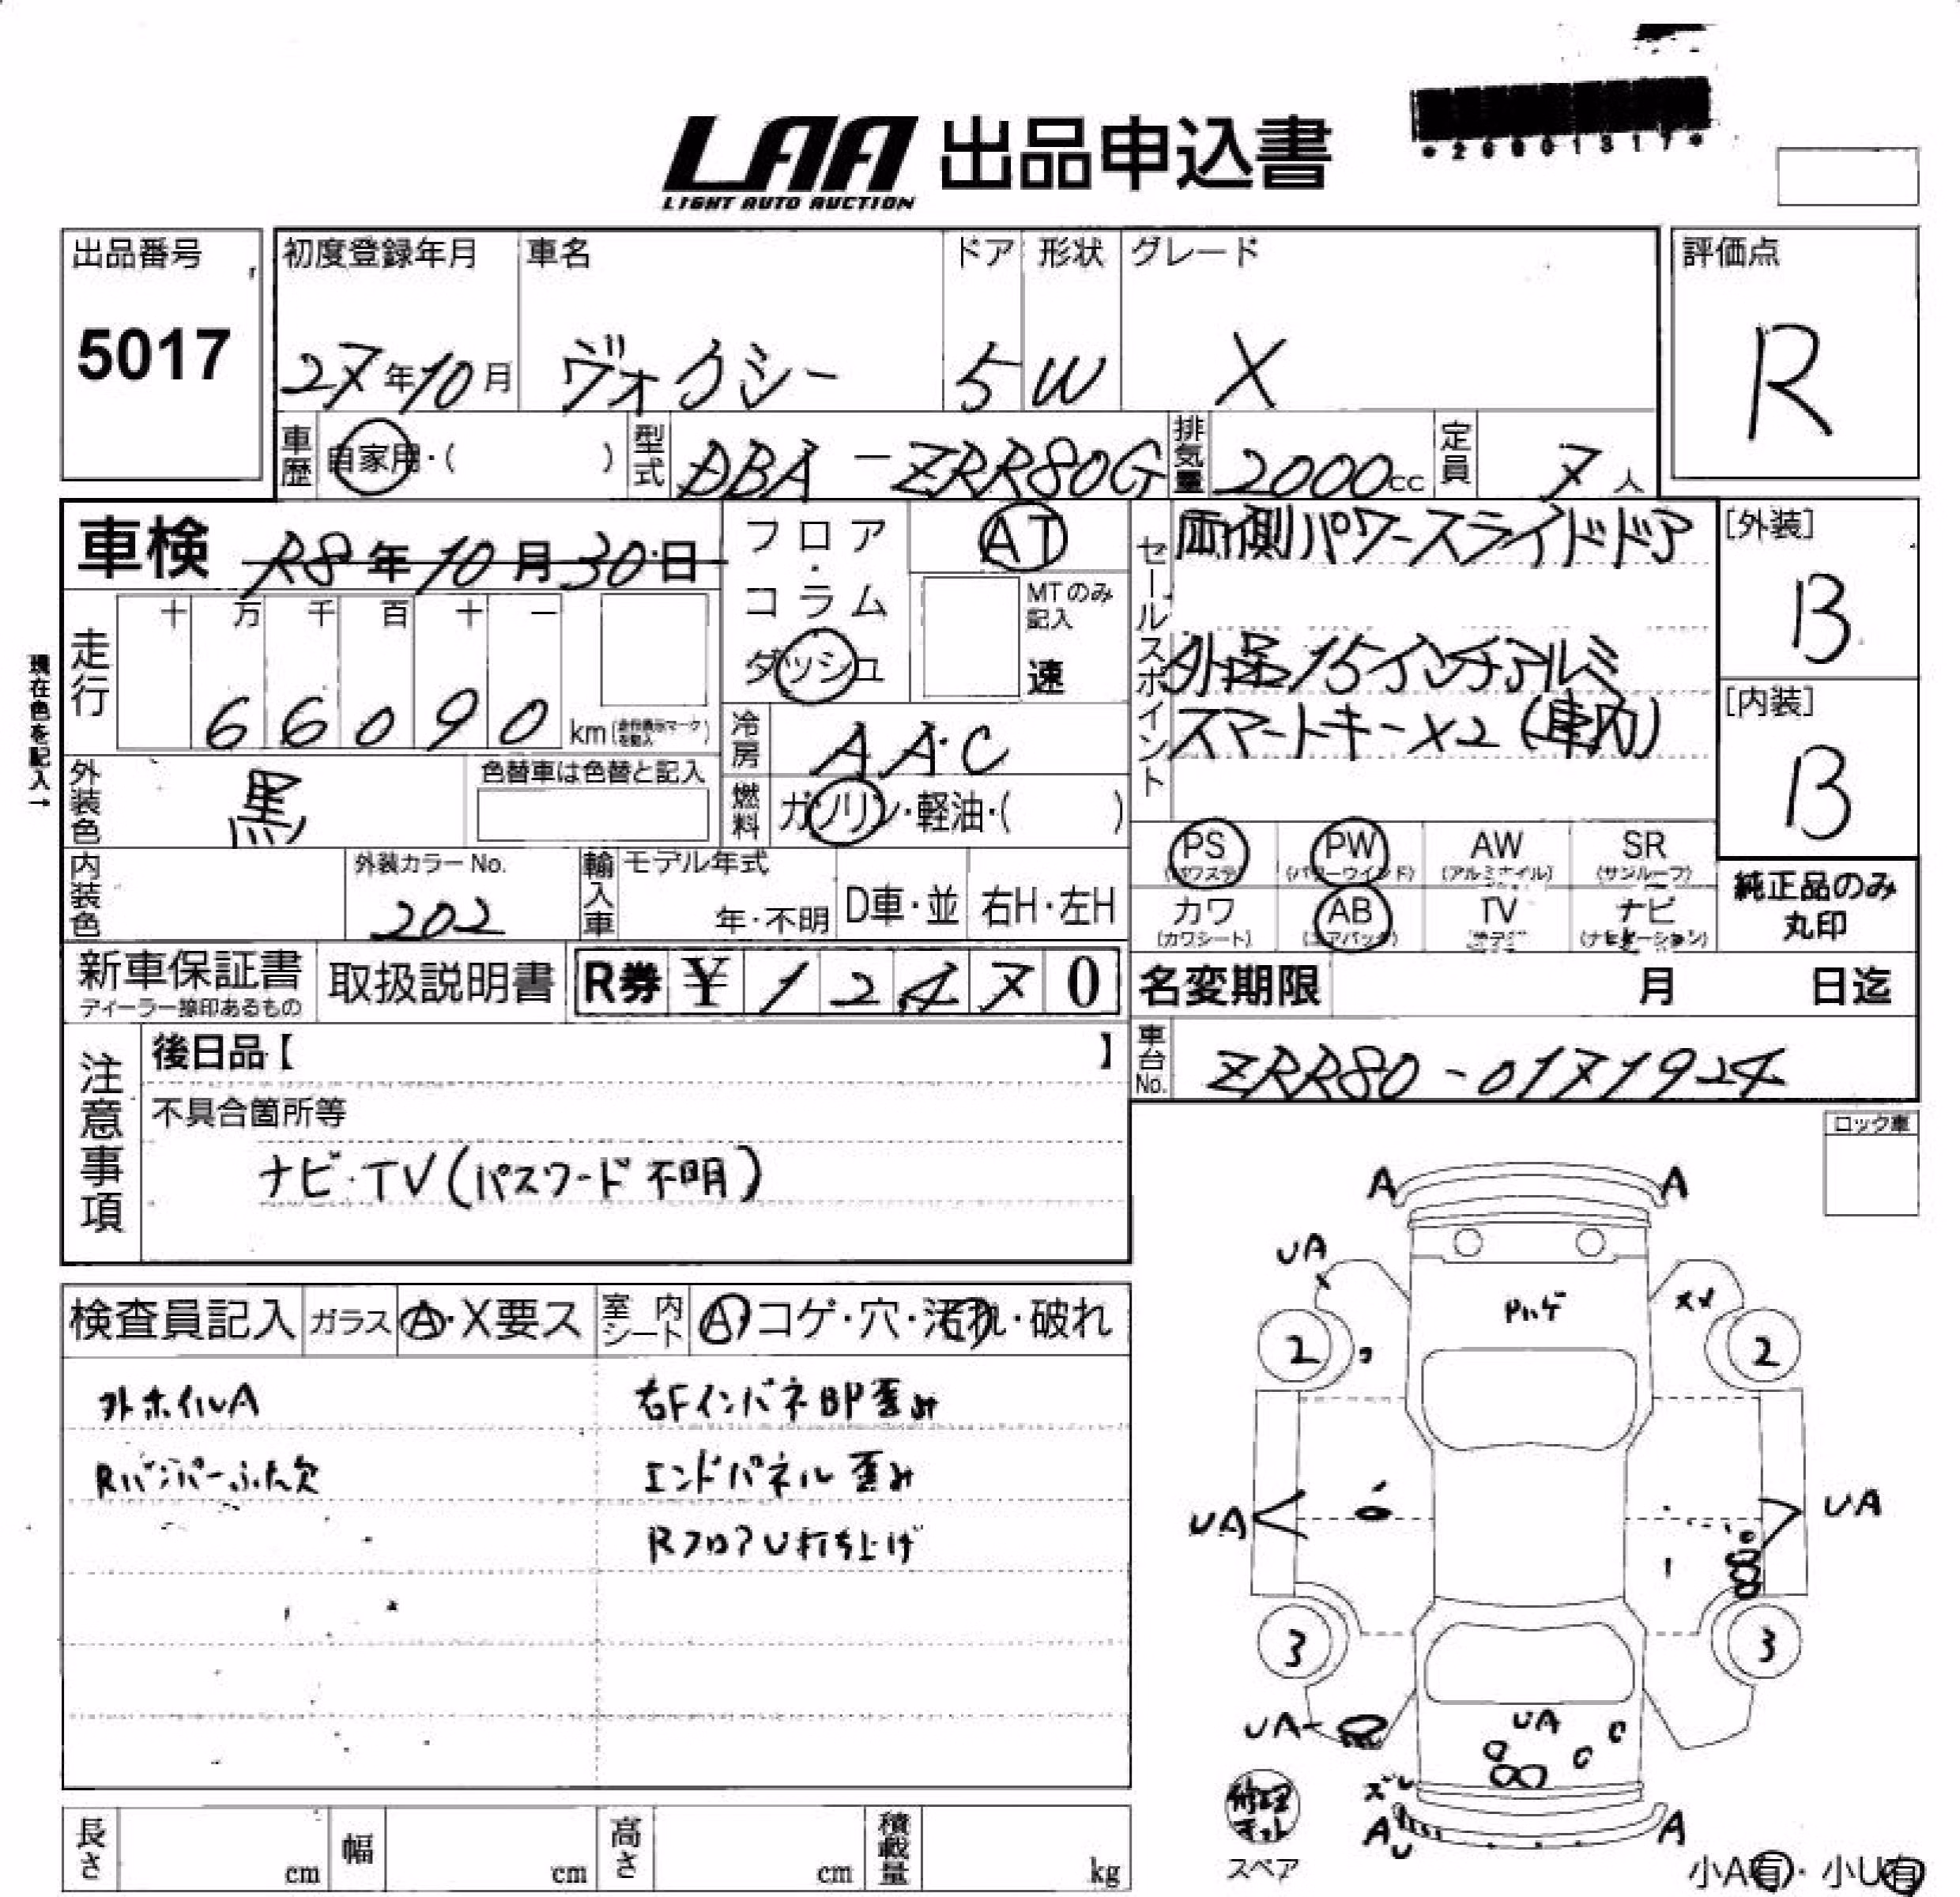 *26001317*
LAA 出品申込書
LIGHT AUTO AUCTION
出品番号
5017
初度登録年月
27年10月
車名
ヴォクシー
ドア
5
形状
W
グレード
X
評価点
R
車歴
自家用・( )
型式
DBA-ZRR80G
排気量
2000cc
定員
7人
車検 R8年10月30日
フロア・コラム
ダッシュ
AT
MTのみ記入
速
セールスポイント
両側パワースライドドア
外品15インチアルミ
スマートキーX2(車内)
[外装]
B
[内装]
B
現在色を記入→
走行
十 万 千 百 十 一
66090 km
外装色
黒
色替車は色替と記入
冷房
AAC
燃料
ガソリン・軽油・( )
PS (パワステ)
PW (パワーウインド)
AW (アルミホイル)
SR (サンルーフ)
カワ (カワシート)
AB (エアバック)
TV
ナビ (ナビゲーション)
純正品のみ
丸印
内装色
外装カラーNo.
202
輸入車
モデル年式
年・不明
D車・並
右H・左H
新車保証書
ディーラー捺印あるもの
取扱説明書
R券 ¥12470
名変期限 月 日迄
車台No.
ZRR80-0171924
注意事項
後日品【 】
不具合箇所等
ナビ・TV(パスワード不明)
ロック車
検査員記入
ガラス
A・X要ス
室内シート
A・コゲ・穴・汚れ・破れ
外ホイルA
Rバンパーふた欠
右FインパネBP歪み
エンドパネル歪み
RフロアU打ち上げ
A
A
UA
Pハゲ
XX
2
2
UA
UA
3
3
UA
UA
C
C
ズレ
A
U
A
修理キット
スペア
小A有・小U有
長さ cm
幅 cm
高さ cm
積載量 kg